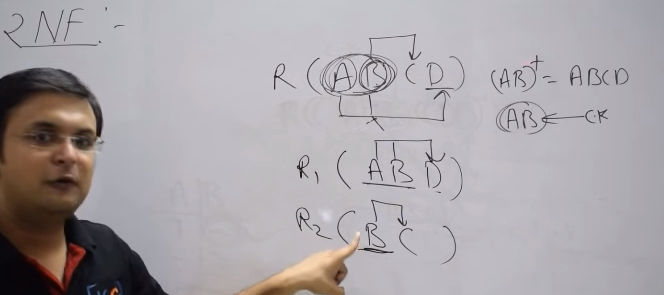 2NF:-
R (AB CD) (AB)⁺ = ABCD
AB ← CK
R₁ (ABD)
R₂ (BC)